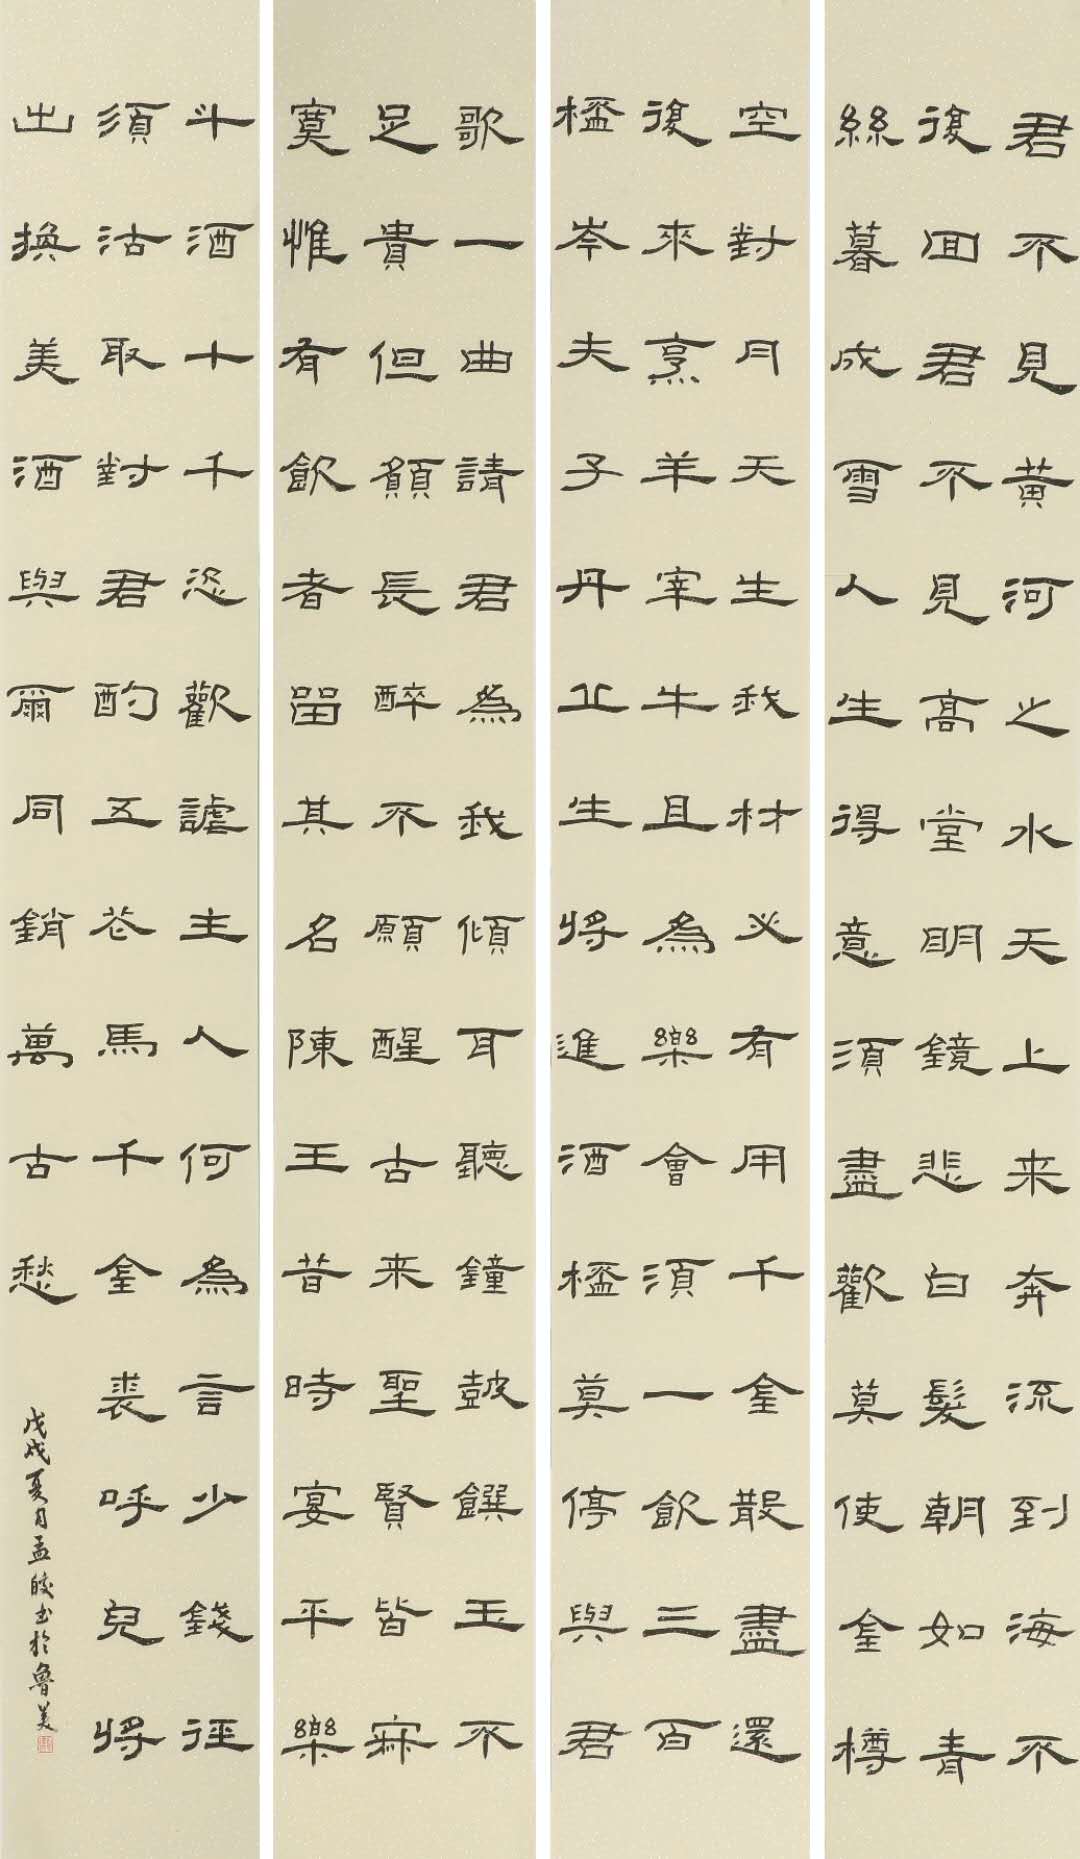 君不見黃河之水天上来奔流到海不
復回君不見高堂明鏡悲白髮朝如青
絲暮成雪人生得意須盡歡莫使金樽
空對月天生我材必有用千金散盡還
復來烹羊宰牛且為樂會須一飲三百
杯岑夫子丹丘生將進酒杯莫停與君
歌一曲請君為我傾耳聽鐘鼓饌玉不
足貴但願長醉不願醒古来聖賢皆寂
寞惟有飲者留其名陳王昔時宴平樂
斗酒十千恣歡謔主人何為言少錢徑
須沽取對君酌五花馬千金裘呼兒將
出換美酒與爾同銷萬古愁
戊戌夏月孟皎书於魯美